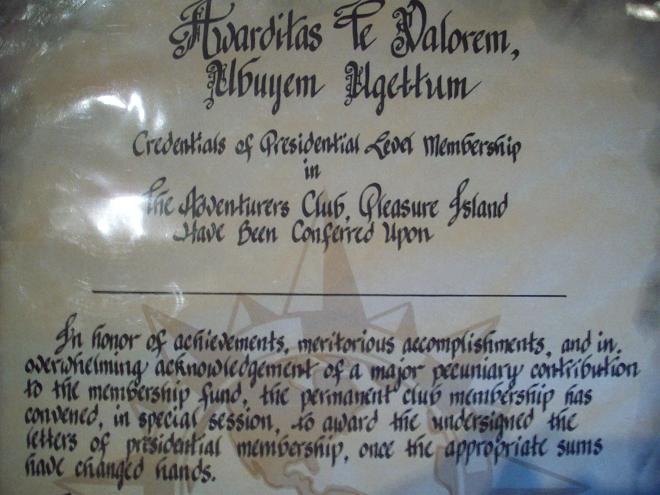 Awarditas Te Valorem,
Ubuyem Ugettum
Credentials of Presidential Level Membership
in
The Adventurers Club, Pleasure Island
Have Been Conferred Upon
In honor of achievements, meritorious accomplishments, and in
overwhelming acknowledgement of a major pecuniary contribution
to the membership fund, the permanent club membership has
convened, in special session, to award the undersigned the
letters of presidential membership, once the appropriate sums
have changed hands.